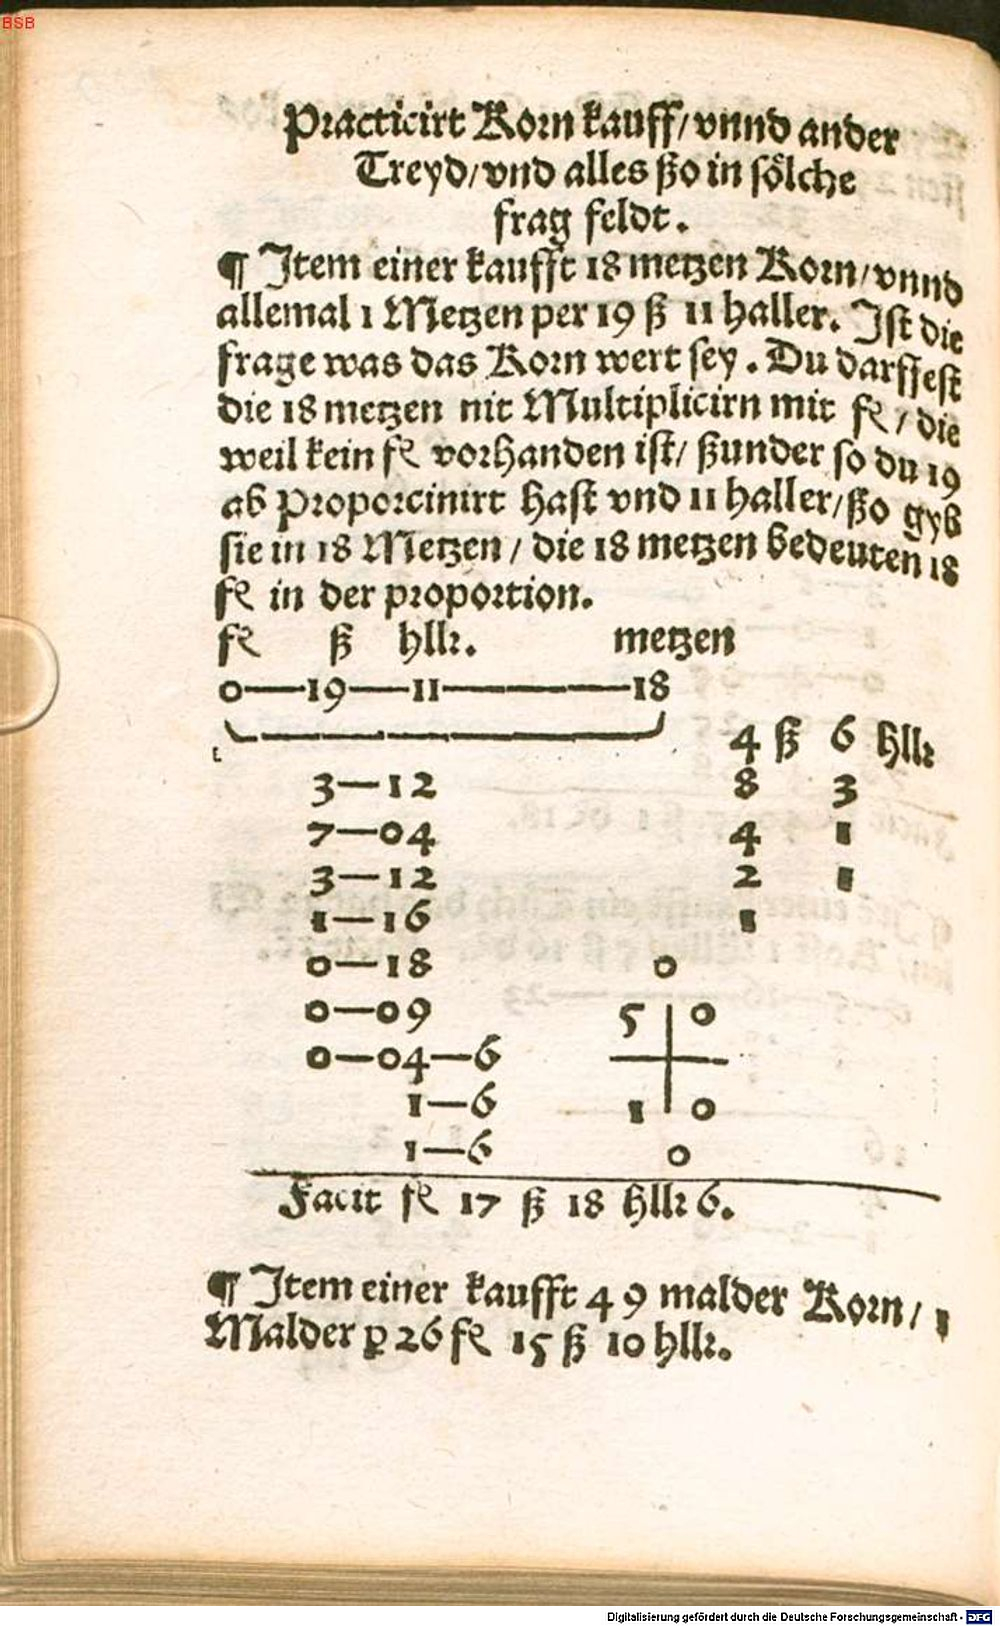 BSB
Practicirt Korn kauff/vnnd ander
Treyd/vnd alles ßo in soͤlche
frag feldt.
¶ Item einer kaufft 18 metzen Korn/vnnd
allemal 1 Metzen per 19 ß 11 haller. Ist die
frage was das Korn wert sey. Du darffest
die 18 metzen nit Multiplicirn mit fl/die
weil kein fl vorhanden ist/ ßunder so du 19
ab Proporcinirt hast vnd 11 haller/ßo gyb
sie in 18 Metzen/die 18 metzen bedeuten 18
fl in der proportion.
fl ß hllr. metzen
0—19—11———18
4 ß 6 hllr
3—12 8 3
7—04 4 1
3—12 2 1
1—16 1
0—18 0
0—09 5 0
0—04—6
1—6 1 0
1—6 0
Facit fl 17 ß 18 hllr 6.
¶ Item einer kaufft 49 malder Korn/ 1
Malder ꝑ 26 fl 15 ß 10 hllr.
Digitalisierung gefördert durch die Deutsche Forschungsgemeinschaft - DFG